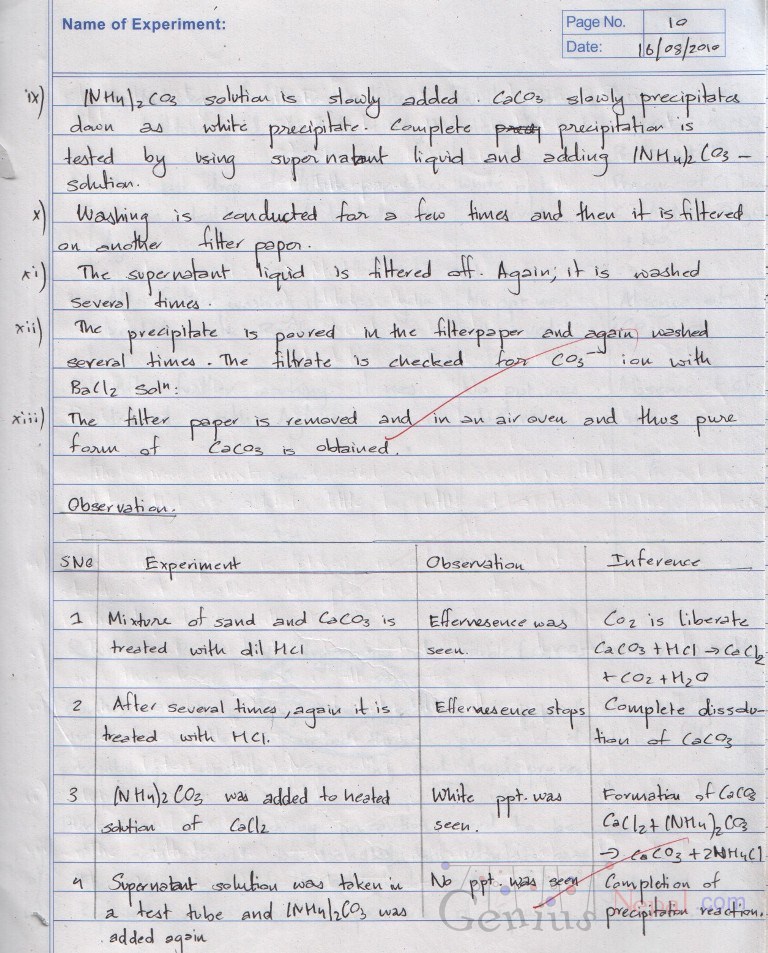 Name of Experiment:
Page No. 10
Date: 16/08/2010
ix) (NH4)2CO3 solution is slowly added. CaCO3 slowly precipitates
down as white precipitate. Complete precipitation is
tested by using supernatant liquid and adding (NH4)2CO3 -
solution.
x) Washing is conducted for a few times and then it is filtered
on another filter paper.
xi) The supernatant liquid is filtered off. Again; it is washed
several times.
xii) The precipitate is poured in the filterpaper and again washed
several times. The filtrate is checked for CO3-- ion with
BaCl2 soln:
xiii) The filter paper is removed and in an air oven and thus pure
form of CaCO3 is obtained.
Observation.
SNo Experiment Observation Inference
1 Mixture of sand and CaCO3 is Effervesence was Co2 is liberate
treated with dil HCl seen. CaCO3 + HCl → CaCl2
+ CO2 + H2O
2 After several times, again it is Effervesence stops Complete dissolu-
treated with HCl. tion of CaCO3
3 (NH4)2CO3 was added to heated White ppt. was Formation of CaCO3
solution of CaCl2 seen. CaCl2 + (NH4)2CO3
→ CaCO3 + 2NH4Cl
4 Supernatant solution was taken in No ppt. was seen Completion of
a test tube and (NH4)2CO3 was precipitation reaction.
added again
Genius Nepal.com